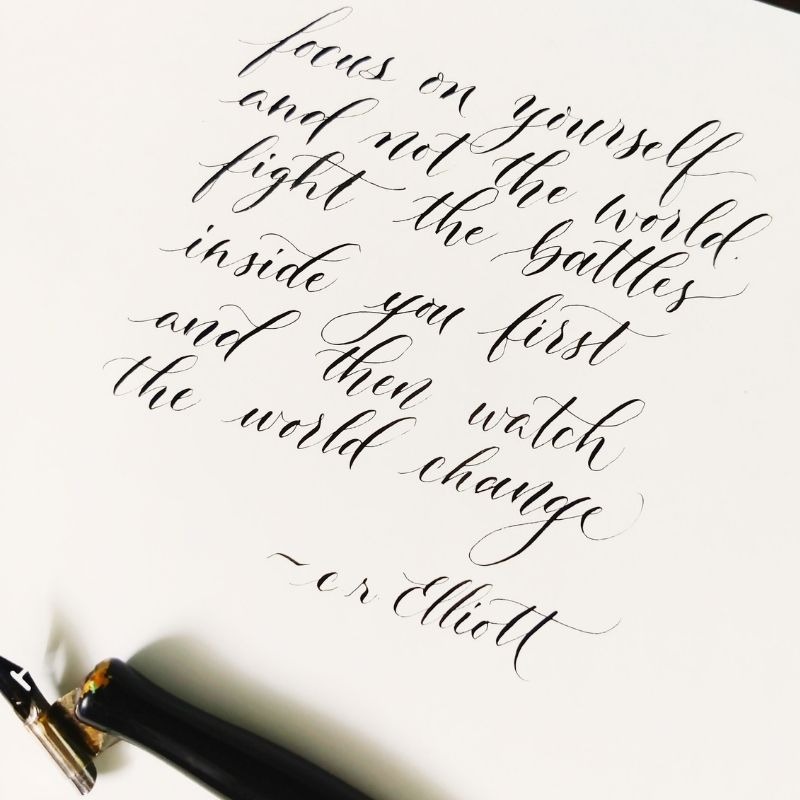 focus on yourself
and not the world.
fight the battles
inside you first
and then watch
the world change
~ c r Elliott